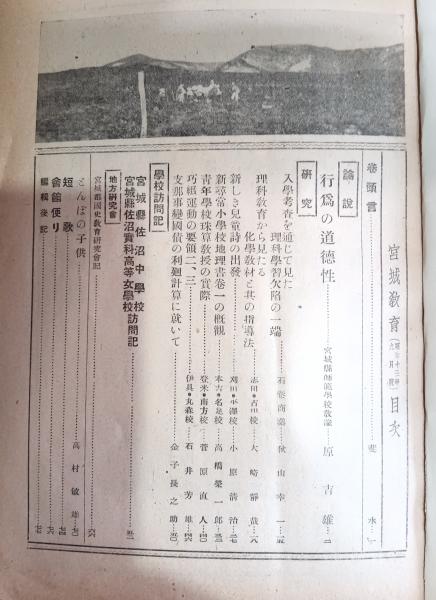 宮城敎育（昭和十三年九月號）目次
卷頭言……斐水…一
論說
行爲の道德性……宮城縣師範學校敎諭 原吉雄…二
硏究
入學考査を通じて見た
理科學習欠陥の一端……石卷商業 秋山幸一…一五
理科敎育から見たる
化學敎材と其の指導法……志田・古川校 大崎靜哉…一八
新しき兒童詩の出發……刈田・平澤校 小原淸治…二七
新尋常小學校地理書卷一の槪觀……本吉・名足校 高橋榮一郞…三三
靑年學校珠算敎授の實際……登米・南方校 菅原直人…四〇
巧組運動の要領二、三……伊具・丸森校 石井芳雄…四六
支那事變國債の利廻計算に就いて……金子長之助…五〇
學校訪問記
宮城縣佐沼中學校
宮城縣佐沼實科高等女學校訪問記
地方硏究會
宮城縣國史敎育硏究會記……六八
とんぼの子供……高村敏雄
短歌
會館便り
編輯後記